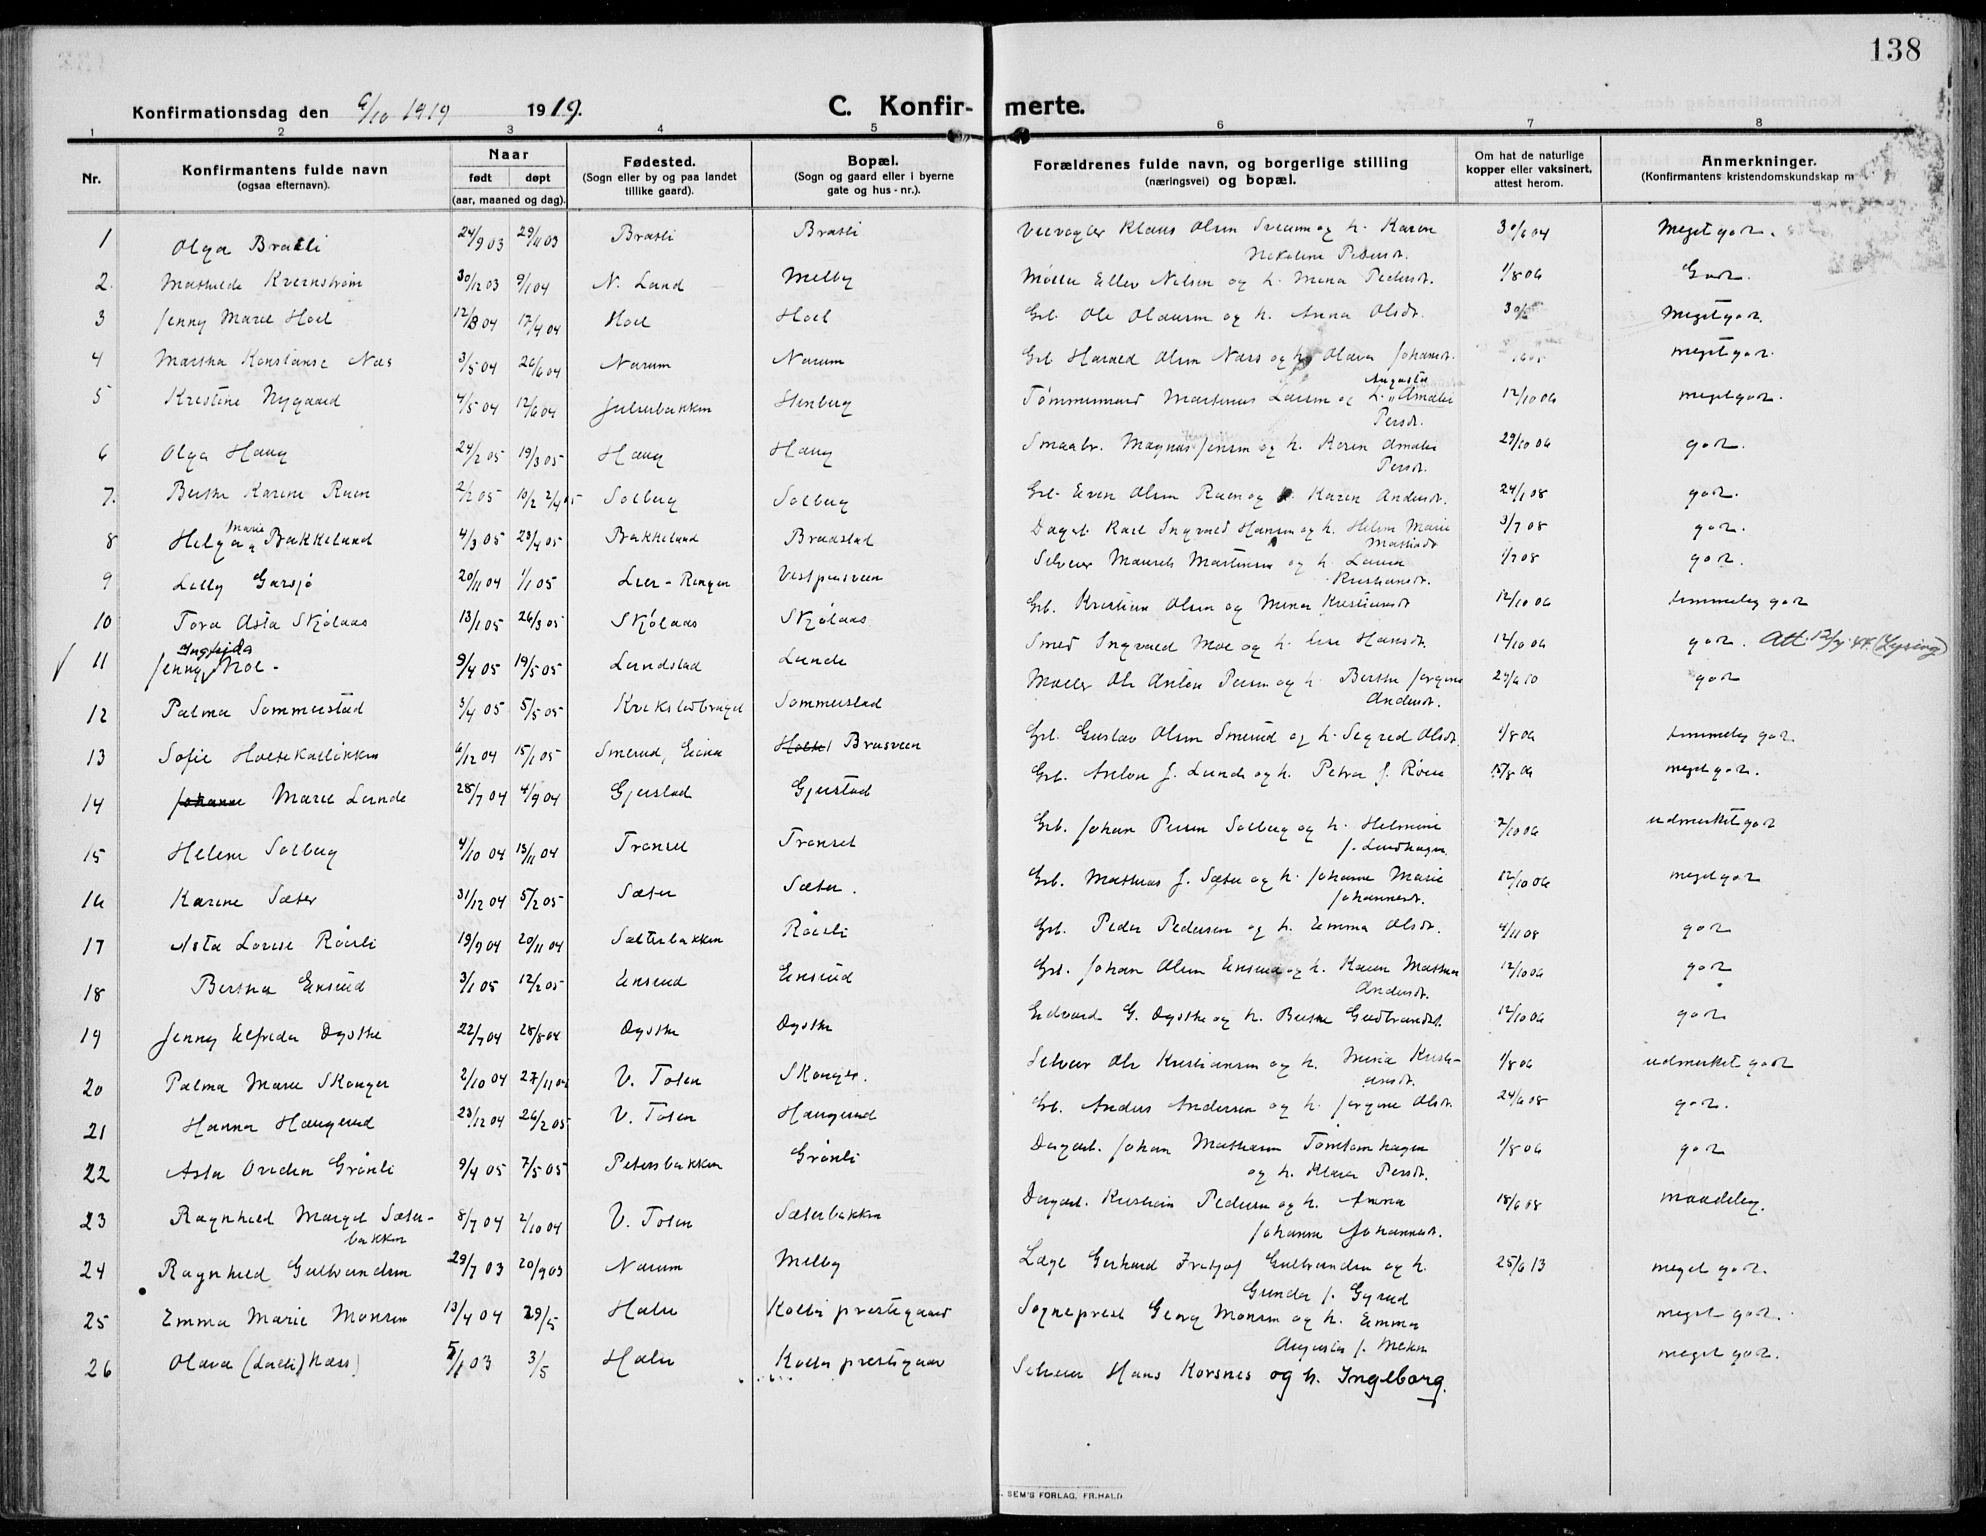 138
Konfirmationsdag den 9/10 1919 1919. C. Konfir- merte.
1 2 3 4 5 6 7 8
Nr. Konfirmantens fulde navn (ogsaa efternavn). Naar født døpt (aar, maaned og dag). Fødested. (Sogn eller by og paa landet tillike gaard). Bopæl. (Sogn og gaard eller i byerne gate og hus-nr.). Forældrenes fulde navn, og borgerlige stilling (næringsvei) og bopæl. Om hat de naturlige kopper eller vaksinert, attest herom. Anmerkninger. (Konfirmantens kristendomskundskap m
1 Olga Brasli 24/9 03 29/11 03 Brasli Brasli Klaus Olsen og h. Karen 30/6 04 Meget god.
Petersdt.
2. Mathilde Kvernstrøm 30/12 03 9/1 04 N. Land Melby Møller Ellev Nilsen og h. Mina Pedersdt. 1/8 06 God.
3 Jenny Marie Hoel 12/3 04 17/4 04 Hoel Hoel Grb. Ole Olausen og h. Anna Olsdt. 30/ Meget god.
4 Martha Konstanse Næs 3/5 04 26/6 04 Narum Narum Grb Harald Olsen Næss og h. Olava Johansdt. meget god.
5 Kristine Nygaard 4/5 04 12/6 04 Julierbakken Stenberg Tømmermand Martinus Larsen og h. Augusta Amalie 12/10 06 meget god.
Persdt.
6 Olga Haug 24/2 05 19/3 05 Haug Haug Smaabr. Magnus Jensen og h. Karen Amalie 29/10 06 god.
Persdt.
7. Berthe Karine Ruen 2/2 05 2/4 05 Solberg Solberg Grb. Even Olsen Ruen og h. Karen Andersdt. 24/1 08 god.
8 Helga Marie Bakkelund 4/3 05 23/4 05 Bakkelund Braastad Dagarb. Karl Ingvald Hansen og h. Helene Marie 3/7 08 god.
9 Lilly Garsjø 20/11 04 1/1 05 Lier-Ringen Selveier Maurits Martinsen og h. Laura 1/7 08 god.
Kristiansdt.
10 Tora Asta Skjølaas 13/1 05 26/3 05 Skjølaas Skjølaas Grb. Kristian Olsen og Mina Kristiansdt 12/10 06 temmelig god
11 Jenny Ingfrida Moe - 9/4 05 19/5 05 Lundstad Lunde Smed Ingvald Moe og h. Hansdt. 12/10 06 god. Att. 12/7 44. (Lysing)
12 Palma Sommerstad 3/4 05 5/5 05 Sommerstad Møller Ole Anton Persen og h. Berthe Jørgine 27/6 10 god
Andersdt.
13 Sofie Holtekalbakken 6/12 04 15/1 05 Smerud, Eina Brusveen Grb. Gustav Olsen Smerud og h. Sigrid Olsdt. 1/8 06 temmelig god.
14 Johanne Marie Lunde 28/7 04 4/9 04 Gjerstad Gjerstad Grb. Anton J. Lunde og h. Petra J. Røise 15/8 06 meget god.
15 Helene Solberg 4/10 04 13/11 04 Transet Transet Grb. Johan Persen Solberg og h. Helmine 2/10 06 udmerket god
f. Lundhagen
16 Karine Sæter 31/12 04 5/2 05 Sæter Sæter. Grb. Mathias J. Sæter og h. Johanne Marie 12/10 06 meget god
Johannesdt.
17 Asta Lovise Røisli 19/9 04 20/11 04 Sæterbakken Røisli Grb. Peder Pedersen og h. Emma Olsdt. 4/11 08 god
18 Bertha Ensrud 3/1 05 12/2 05 Ensrud Ensrud Grb. Johan Olsen Ensrud og h. Karen Mathea 12/10 06 god
Andersdt.
19 Jenny Elfrida Dysthe 22/7 04 28/8 04 Dysthe Dysthe Edvard G. Dysthe og h. Berthe Gudbrandsdt. 12/10 06 god
20 Palma Marie Skonger 2/10 04 27/11 04 V. Toten Skonger. Selveier Ole Kristiansen og h. Maria Kristi- 1/8 06 udmerket god
ansdt.
21 Hanna Haugerud 23/12 04 26/2 05 V. Toten Haugerud Grb. Anders Andersen og h. Jørgine Olsdt. 24/6 08 god.
22 Asta Ovidia Grønli 9/4 05 7/5 05 Petersbakken Grønli Dagarb. Johan Mathisen Tømtemhagen 1/8 06 god
og h. Klara Persdt.
23 Ragnhild Margit Sæter- 8/7 04 2/10 04 V. Toten Sæterbakken Dagarb. Kristian Pedersen og h. Anna 18/6 08 maadelig.
bakken Johanne Johannesdt.
24 Ragnhild Gulbrandsen 29/7 03 20/9 03 Narum Melby Læge Gerhard Fritjof Gulbrandsen og h. 25/6 13 meget god.
Gunda f. Gyrud
25 Emma Marie Monsen 13/4 04 29/5 Halse Kolbu prestegaard Sogneprest Georg Monsen og h. Emma meget god.
Augusta f.
26 Olava (Lovli) Næss) 5/1 03 3/5 Halse Kolbu prestegaar Selveier Hans Korsnes og h. Ingeborg. meget god.
SEM'S FORLAG, FR.HALD